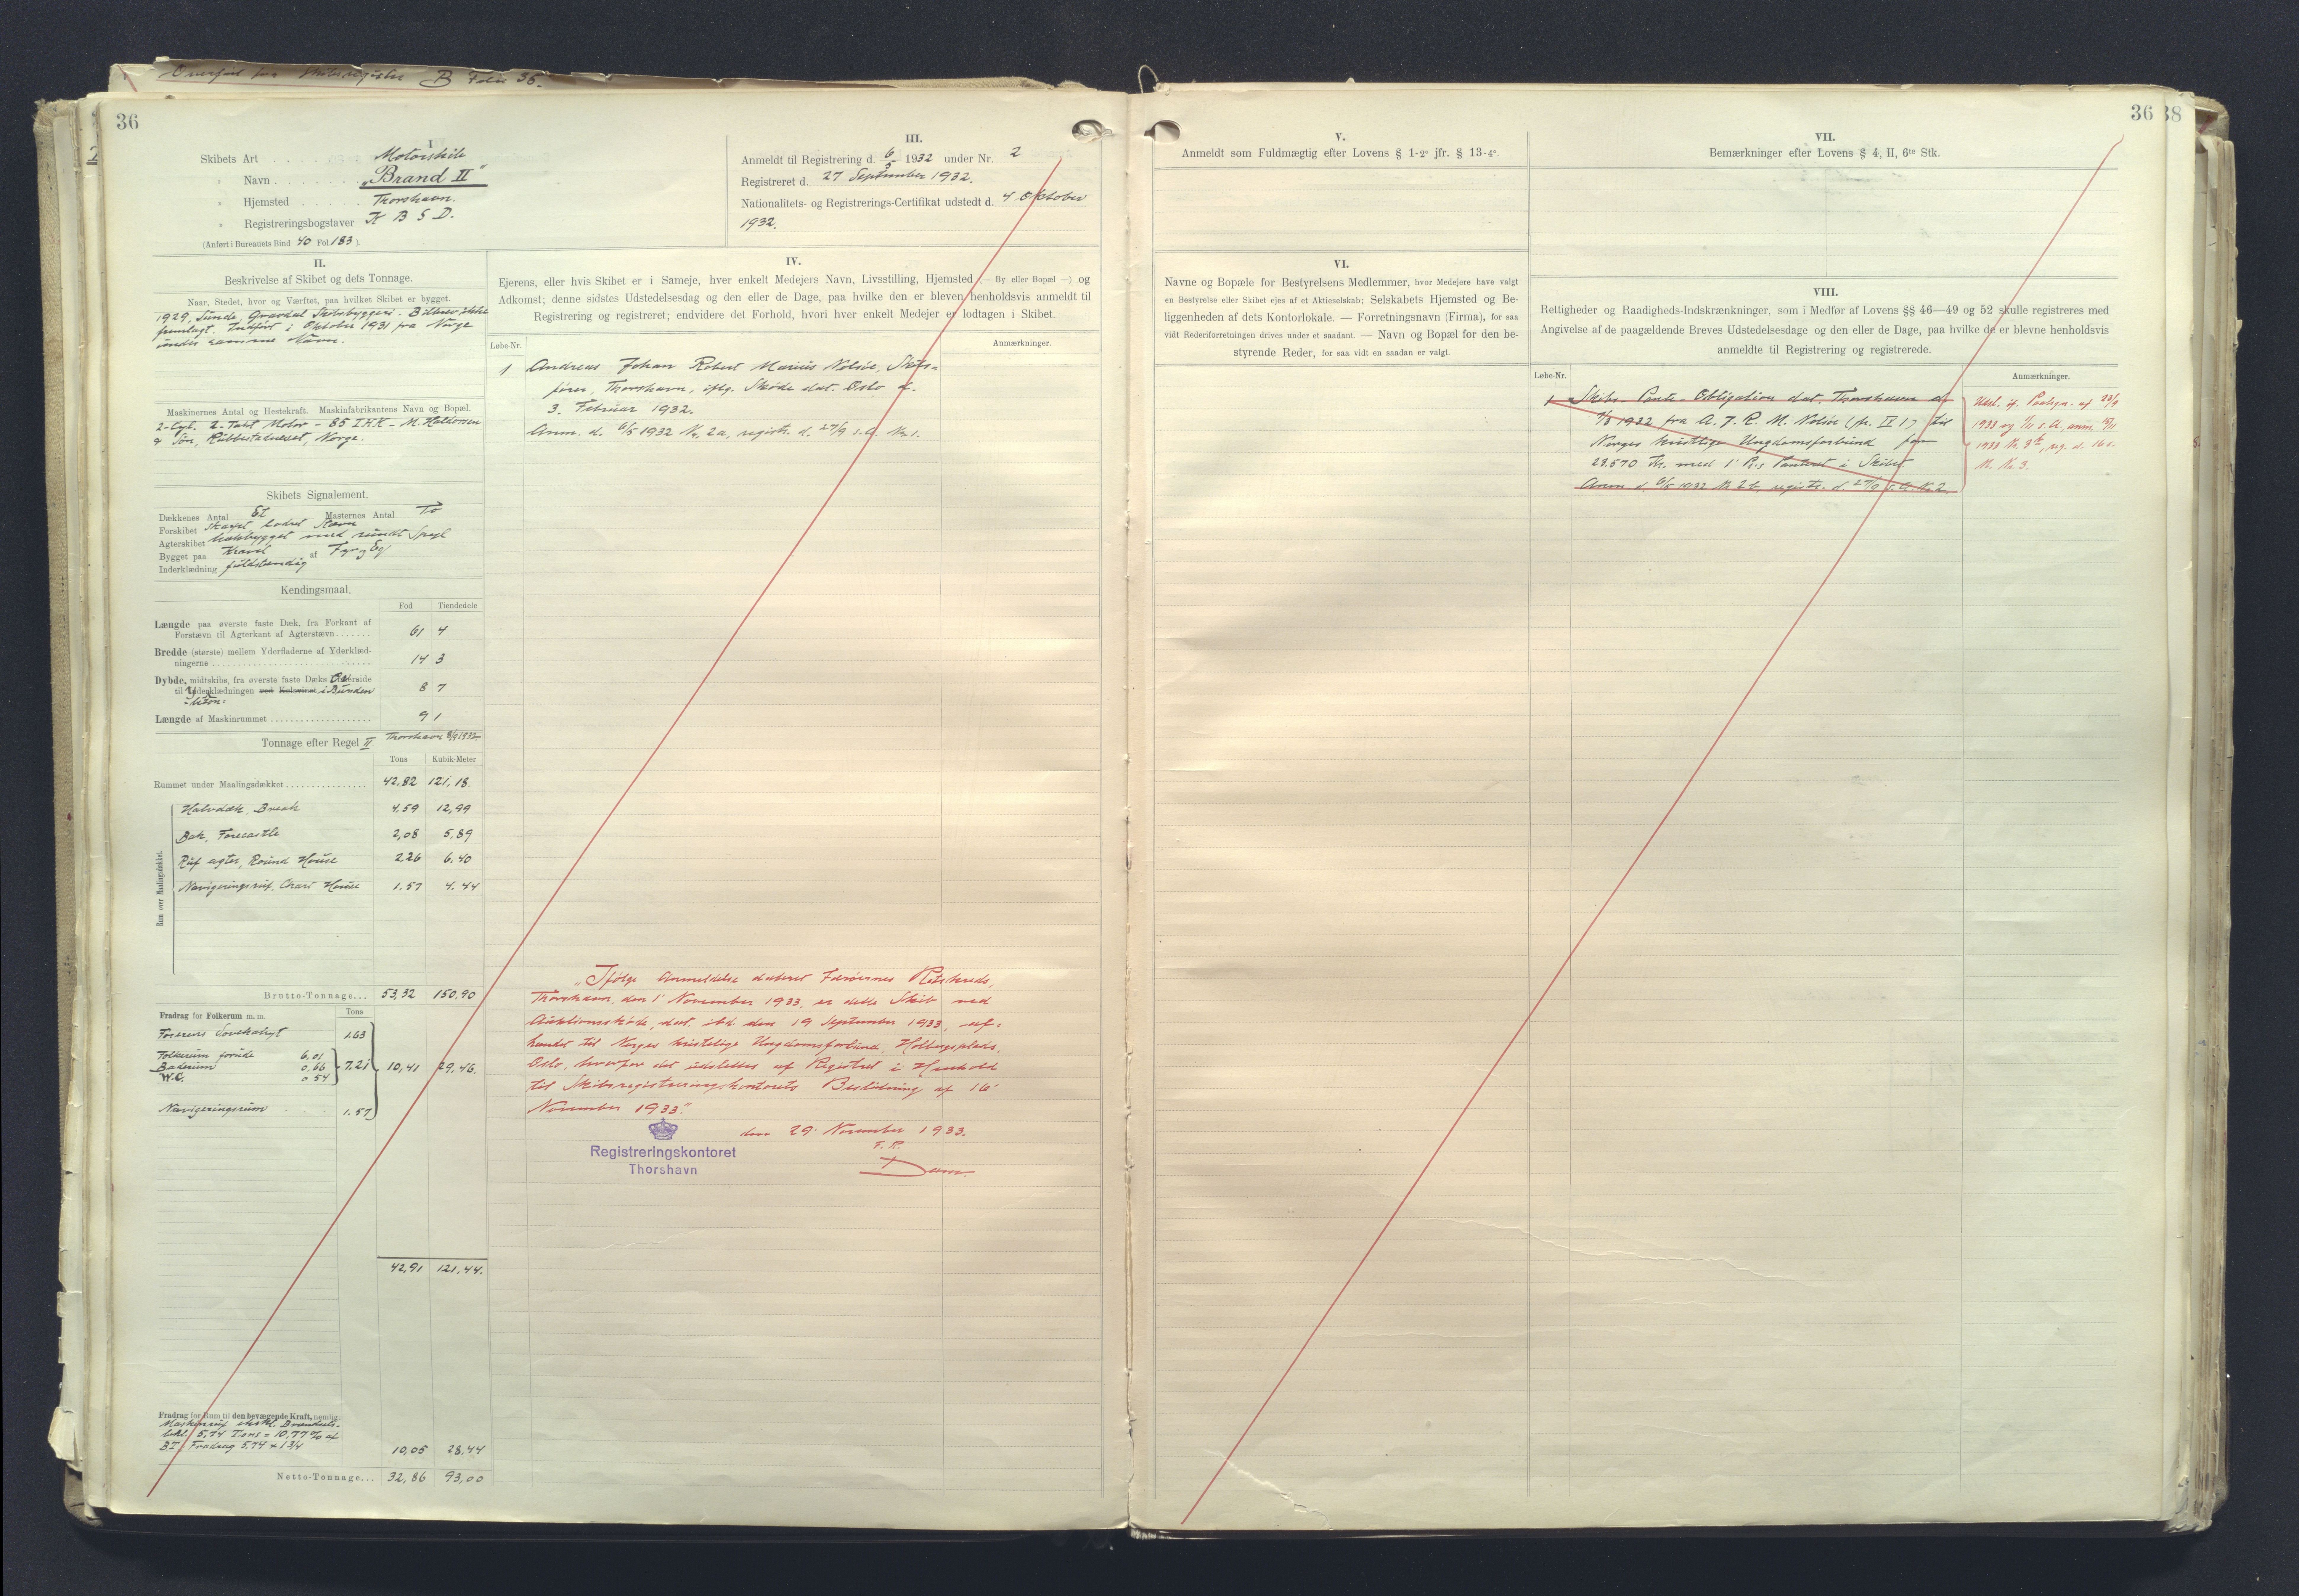 Overført fra Skibsregister B Folio 36.
36
I
Skibets Art . . . . Motorskib
" Navn . . . . . . „Brand II"
" Hjemsted . . . . . Thorshavn.
" Registreringsbogstaver K B S D.
(Anført i Bureauets Bind 40 Fol. 183).
III.
Anmeldt til Registrering d. 6/5 1932 under Nr. 2
Registreret d. 27 September 1932.
Nationalitets- og Registrerings-Certifikat udstedt d. 4 Oktober
1932.
II.
Beskrivelse af Skibet og dets Tonnage.
Naar, Stedet, hvor og Værftet, paa hvilket Skibet er bygget.
1929, Sunde, Gravdal Skibsbyggeri. Bilbrev ikke
fremlagt. Indført i Oktober 1931 fra Norge
under samme Navn.
Maskinernes Antal og Hestekraft. Maskinfabrikantens Navn og Bopæl.
2-Cyl. 2-Takt Motor - 85 I.H.K. - M. Haldorsen
& Søn, Rubbestadneset, Norge.
Skibets Signalement.
Dækkenes Antal Et Masternes Antal To
Forskibet skarpt, lodret Stævn
Agterskibet hækbygget med rundt Spejl
Bygget paa Kravel af Fyr og Eg
Inderklædning fuldstændig
Kendingsmaal.
Fod Tiendedele
Længde paa øverste faste Dæk, fra Forkant af
Forstævn til Agterkant af Agterstævn . . . . . . 61 4
Bredde (største) mellem Yderfladerne af Yderklæd-
ningerne . . . . . . 14 3
Dybde, midtskibs, fra øverste faste Dæks Overside
til Yderklædningen ved Kølsvinet i Bunden 8 7
Længde af Maskinrummet . . . . . . 9 1
Tonnage efter Regel II Thorshavn 8/9 1932
Tons Kubik-Meter
Rummet under Maalingsdækket . . . . . . 42,82 121,18.
Rum over Maalingsdækket.
Halvdæk, Break 4,59 12,99
Bak, Forecastle 2,08 5,89
Ruf agter, Round House 2,26 6,40
Navigeringsruf, Chart House 1.57 4.44
Brutto-Tonnage . . . 53,32 150,90
Fradrag for Folkerum m. m. Tons
Førerens Sovekahyt 1.63
Folkerum forude 6,01
Baderum 0,66 7,21 10,41 29,46.
W.C. 0 54
Navigeringsrum 1.57
42,91 121,44.
Fradrag for Rum til den bevægende Kraft, nemlig:
Maskinruf ekskl. Brændsels-
beh. 5,74 Tons = 10,77 % af
BT. Fradrag 5,74 × 1 3/4 10,05 28,44
Netto-Tonnage . . . 32,86 93,00
IV.
Ejerens, eller hvis Skibet er i Sameje, hver enkelt Medejers Navn, Livsstilling, Hjemsted (— By eller Bopæl —) og
Adkomst; denne sidstes Udstedelsesdag og den eller de Dage, paa hvilke den er bleven henholdsvis anmeldt til
Registrering og registreret; endvidere det Forhold, hvori hver enkelt Medejer er lodtagen i Skibet.
Løbe-Nr. Anmærkninger.
1 Andreas Johan Robert Marius Nolsøe, Skibs-
fører, Thorshavn, iflg. Skøde dat. Oslo d.
3. Februar 1932.
Anm. d. 6/5 1932 Nr. 2a, registr. d. 27/9 s.A. Nr. 1.
„Ifølge Anmeldelse dateret Færøernes Retskreds,
Thorshavn, den 1' November 1933, er dette Skib ved
Auktionsskøde, dat. ibd. den 19 September 1933, af-
hændet til Norges kristelige Ungdomsforbund, Holbergsplads,
Oslo, hvorfor det udslettes af Registret i Henhold
til Skibsregistreringskontorets Beslutning af 16'
November 1933."
den 29' November 1933.
Registreringskontoret
Thorshavn
F. R.
Dam.
36 38
V.
Anmeldt som Fuldmægtig efter Lovens § 1-2° jfr. § 13-4°.
VI.
Navne og Bopæle for Bestyrelsens Medlemmer, hvor Medejere have valgt
en Bestyrelse eller Skibet ejes af et Aktieselskab; Selskabets Hjemsted og Be-
liggenheden af dets Kontorlokale. — Forretningsnavn (Firma), for saa
vidt Rederiforretningen drives under et saadant. — Navn og Bopæl for den be-
styrende Reder, for saa vidt en saadan er valgt.
VII.
Bemærkninger efter Lovens § 4, II, 6te Stk.
VIII.
Rettigheder og Raadigheds-Indskrænkninger, som i Medfør af Lovens §§ 46—49 og 52 skulle registreres med
Angivelse af de paagældende Breves Udstedelsesdage og den eller de Dage, paa hvilke de er blevne henholdsvis
anmeldte til Registrering og registrerede.
Løbe-Nr. Anmærkninger.
1 Skibs-Pante-Obligation dat. Thorshavn d.
1932 fra A. J. R. M. Nolsøe (fr. IV 1) til
Norges kristlige Ungdomsforbund for
23.570 Kr. med 1' P.s Panteret i Skibet
Anm d. 6/5 1932 Nr 2b, registr. d. 27/9 s.A. Nr 2.
Udsl. if. Paategn. af 23/9
1933 og 1/11 s.A., anm. 10/11
1933 Nr. 3b, reg. d. 16 s.
M. Nr. 3.